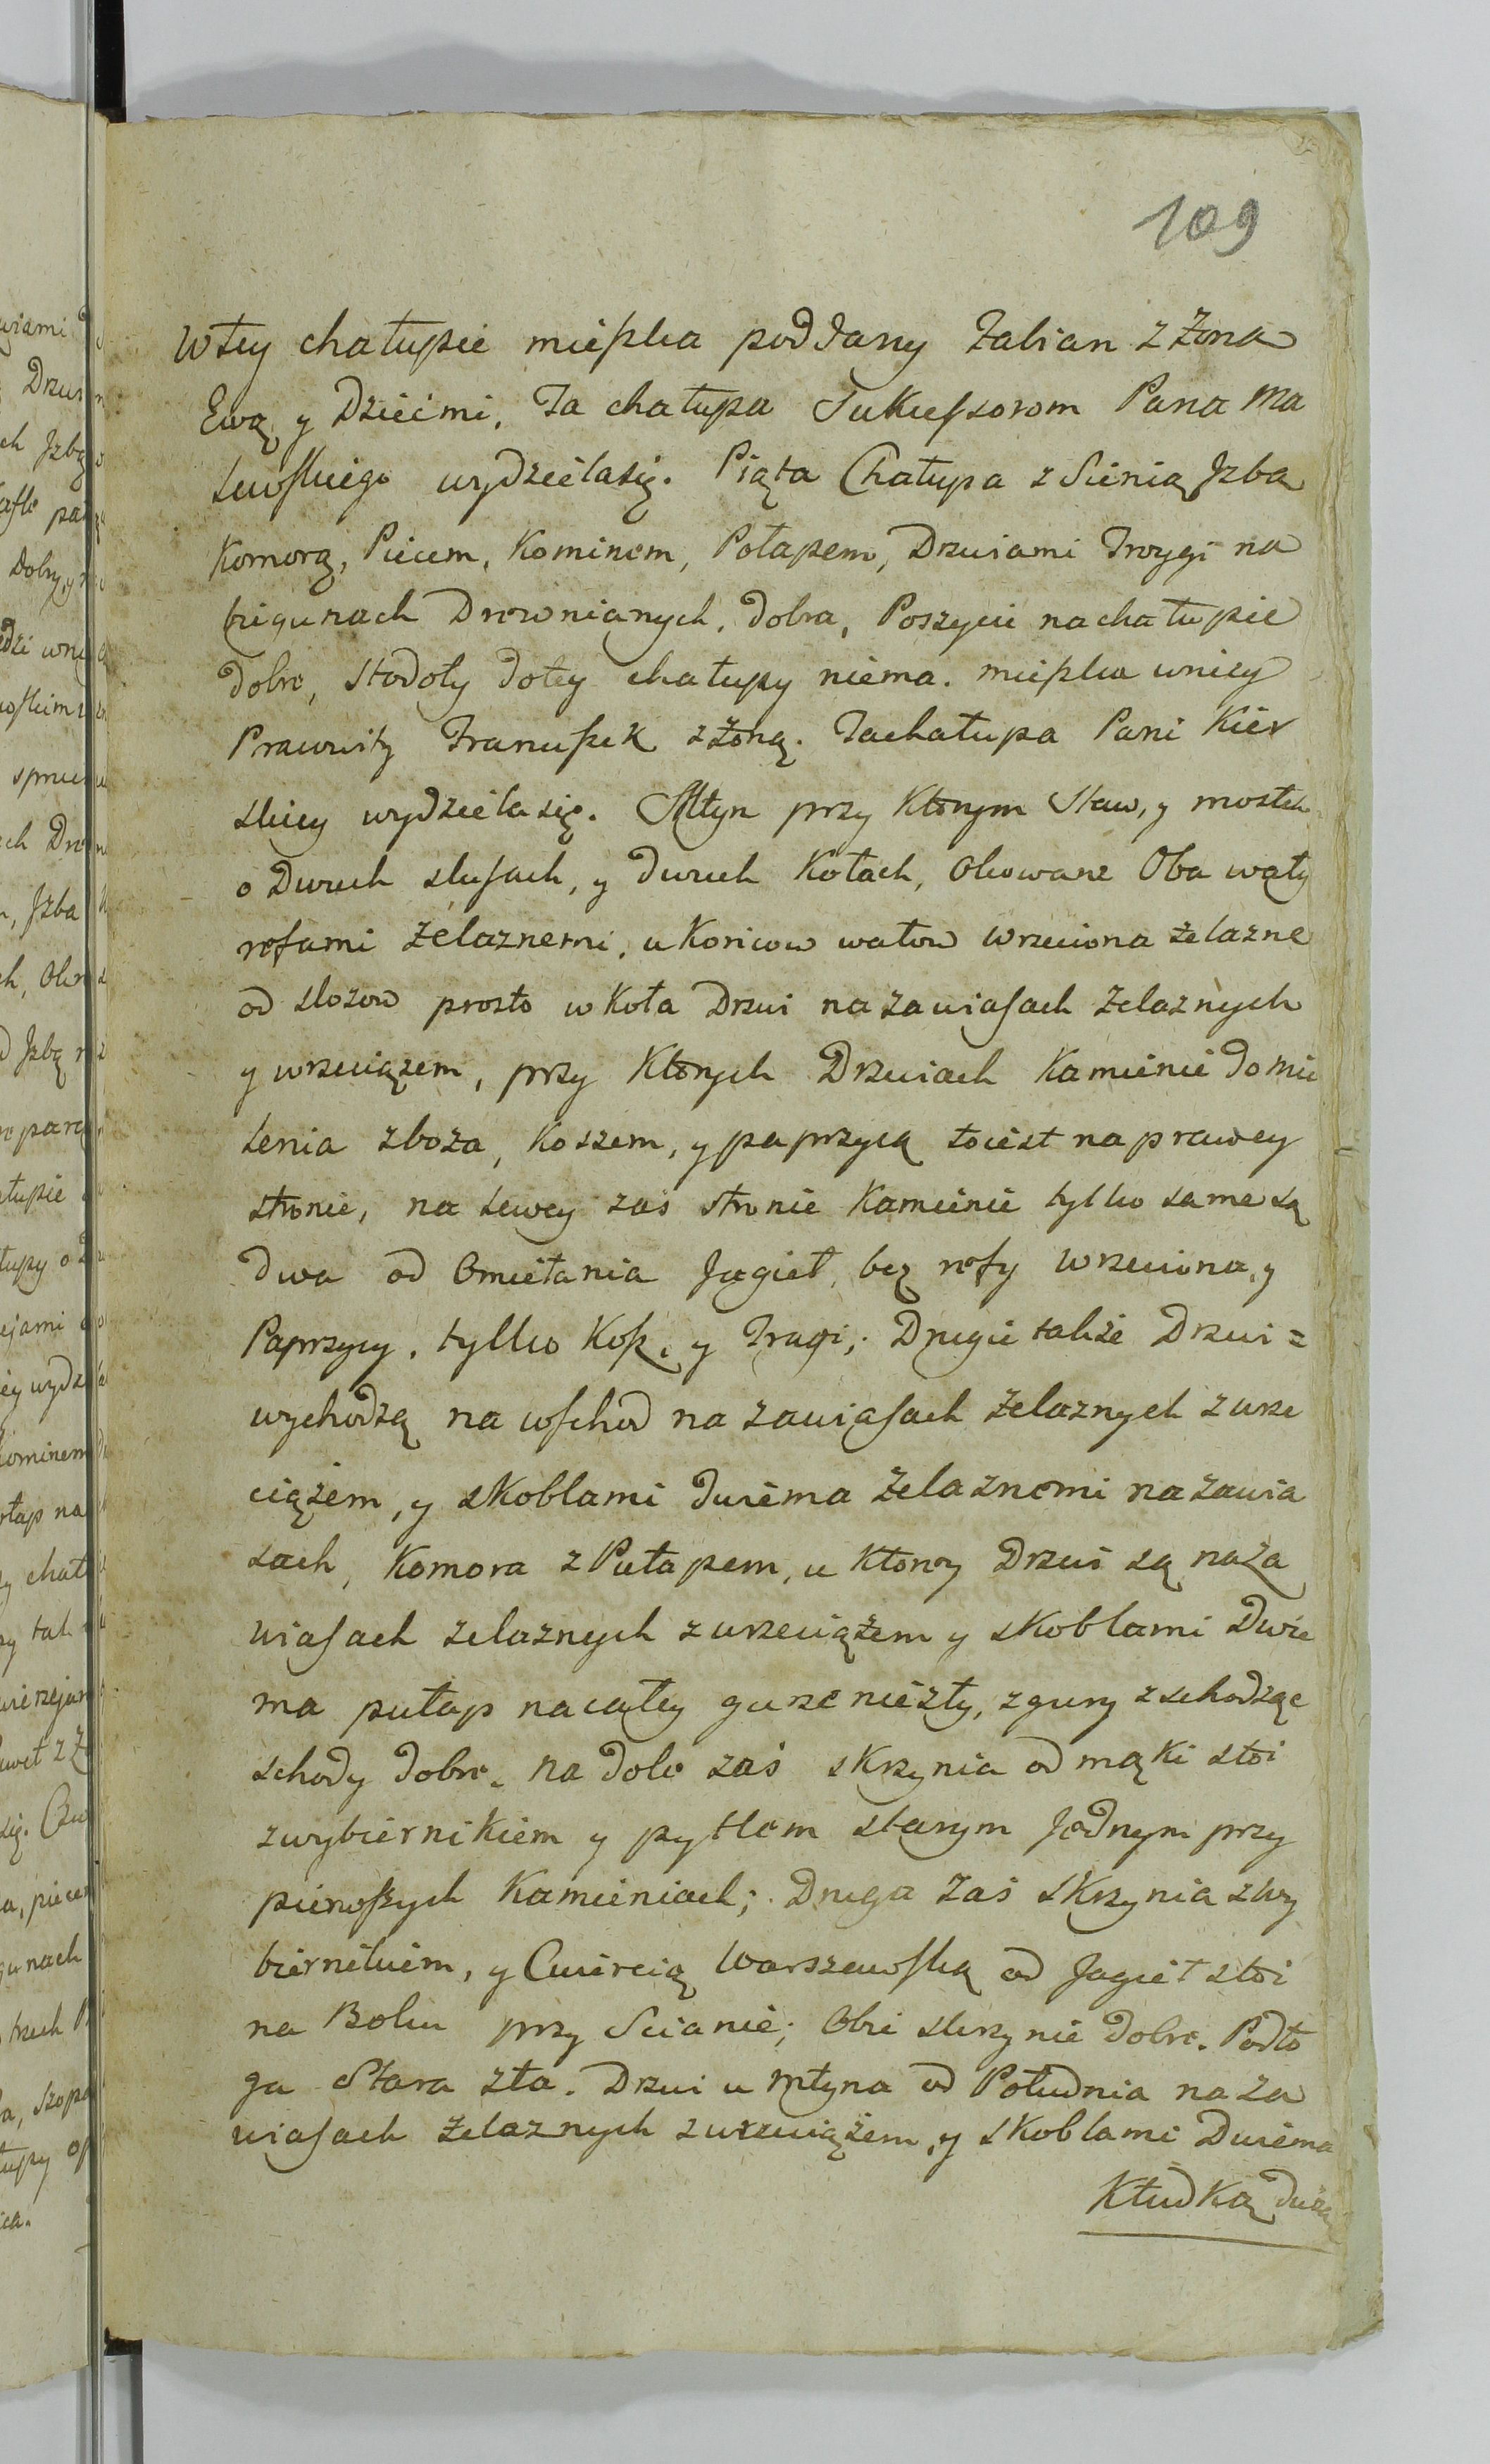 109
W tey chałupie mieszka poddany Fabian z Żoną
Ewą y Dziećmi, Ta chałupa Sukcessorom Pana Ma
lewskiego wydziela się. Piąta Chałupa z Sienią Jzbą
Komorą, Piecem, Kominem, Połapem, Drzwiami Troygi na
biegunach Drewnianych, dobra, Poszycie na chałupie
dobre, stodoły do tey chałupy niema. mieszka w niey
Pracowity Franciszek z Żoną. Ta chałupa Pani Kier
skiey wydziela się. Młyn przy Ktorym Staw, y mostek
o Dwuch slusach, y dwuch Kołach, Okowane Oba wały
refami żelaznemi, u Koncow wałow wrzeciona żelazne
od slozow prosto w Koła Drzwi na zawiasach żelaznych
y wrzeciązem, przy Ktorych Drzwiach Kamienie do mie
lenia zboża, Koszem, y paprzycą toiest na prawey
stronie, na lewey zaś stronie Kamienie tylko same są
dwa od Omiełania Jagieł, bez refy wrzeciona, y
Paprzycy, tylko Kosz, y Tragi; Drugie także Drzwi =
wychodzą na wschod na zawiasach żelaznych z wrze
ciążem, y skoblami dwiema żelaznemi na zawia
sach, Komora z Pułapem, u Ktorey Drzwi są na za
wiasach żelaznych z wrzeciążem y skoblami Dwie
ma pułap na całey gurze niezły, z gury zschodząc
schody dobre, na dole zaś skrzynia od mąki stoi
z wybiernikiem y pytlem starym Jednym przy
pierwszych Kamieniach; Druga zaś skrzynia z wy
biernikiem, y Cwiercią Warszewską od Jagieł stoi
na Boku przy Scianie; Obie skrzynie dobre. Podło
ga Stara zła. Drzwi u młyna od Południa na za
wiasach żelaznych z wrzeciążem, y skoblami Dwiema
Kłudką dużą